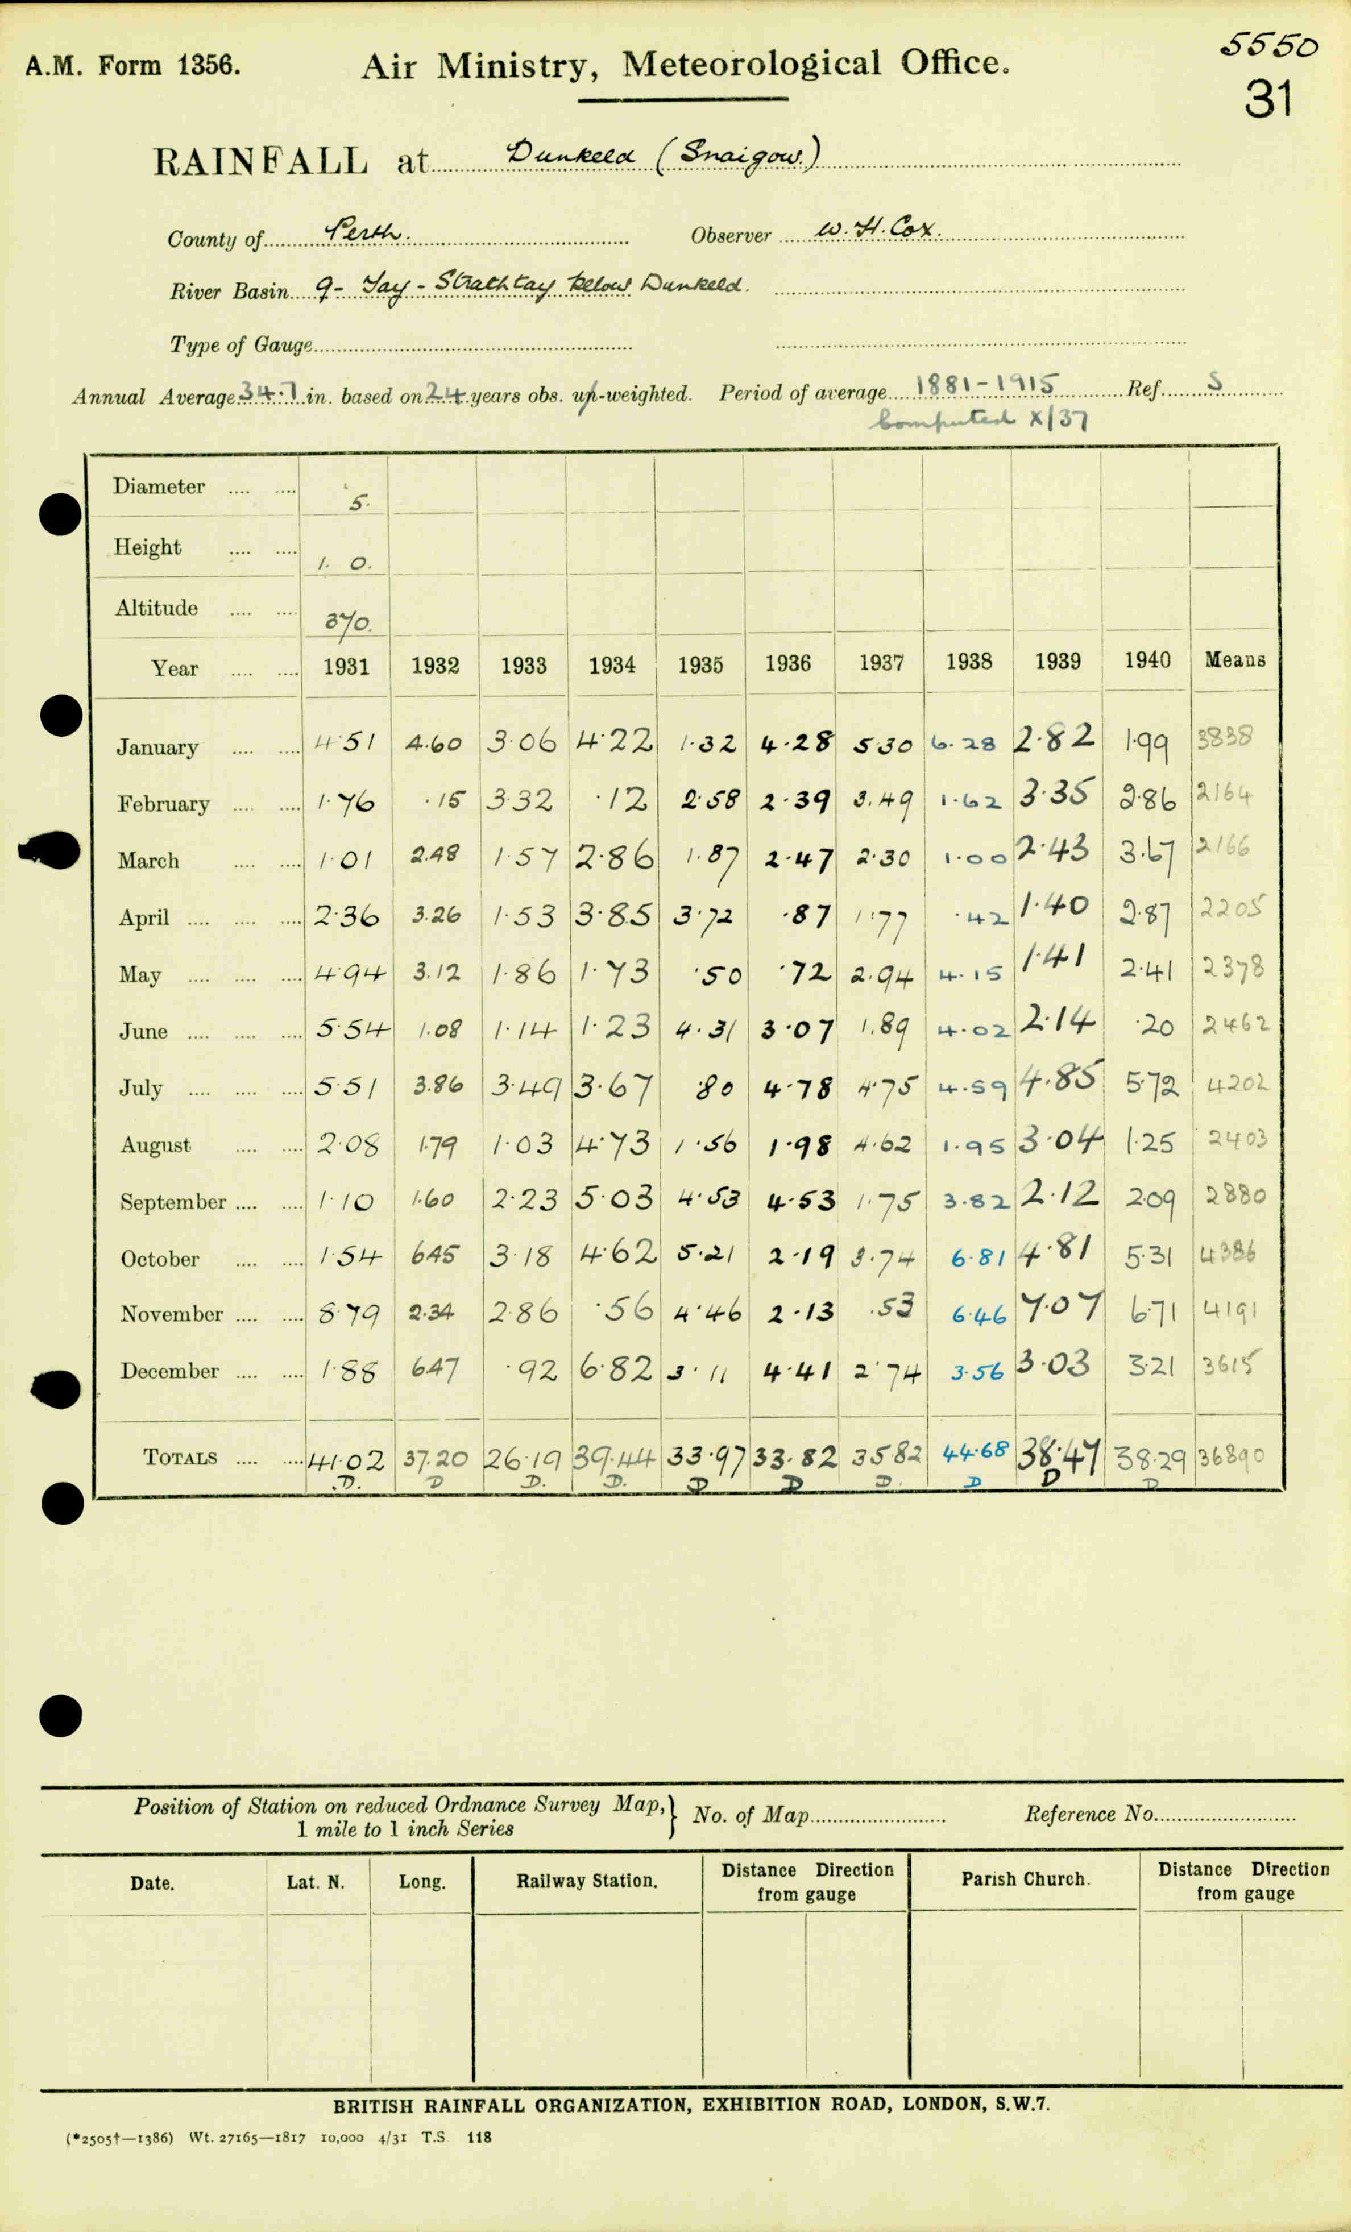 5550
A.M. Form 1356. Air Ministry, Meteorological Office.
31
RAINFALL at Dunkeld (Snaigow.)
County of Perth. Observer W. H. Cox.
River Basin 9- Tay - Strathtay below Dunkeld.
Type of Gauge
Annual Average 34.7 in. based on 24 years obs. up-weighted. Period of average 1881-1915 Ref. S
Computed X/37
Diameter 5.
Height 1. 0.
Altitude 370.
Year 1931 1932 1933 1934 1935 1936 1937 1938 1939 1940 Means
January 4.51 4.60 3.06 4.22 1.32 4.28 5.30 6.28 2.82 1.99 3838
February 1.76 .15 3.32 .12 2.58 2.39 3.49 1.62 3.35 2.86 2164
March 1.01 2.48 1.57 2.86 1.87 2.47 2.30 1.00 2.43 3.67 2166
April 2.36 3.26 1.53 3.85 3.72 .87 1.77 .42 1.40 2.87 2205
May 4.94 3.12 1.86 1.73 .50 .72 2.94 4.15 1.41 2.41 2378
June 5.54 1.08 1.14 1.23 4.31 3.07 1.89 4.02 2.14 .20 2462
July 5.51 3.86 3.49 3.67 .80 4.78 4.75 4.59 4.85 5.72 4202
August 2.08 1.79 1.03 4.73 1.56 1.98 4.62 1.95 3.04 1.25 2403
September 1.10 1.60 2.23 5.03 4.53 4.53 1.75 3.82 2.12 2.09 2880
October 1.54 6.45 3.18 4.62 5.21 2.19 3.74 6.81 4.81 5.31 4386
November 8.79 2.34 2.86 .56 4.46 2.13 .53 6.46 7.07 6.71 4191
December 1.88 6.47 .92 6.82 3.11 4.41 2.74 3.56 3.03 3.21 3615
TOTALS 41.02 37.20 26.19 39.44 33.97 33.82 35.82 44.68 38.47 38.29 36890
D. D D. D. D D D. D D D
Position of Station on reduced Ordnance Survey Map, } No. of Map Reference No.
1 mile to 1 inch Series
Date. Lat. N. Long. Railway Station. Distance Direction Parish Church. Distance Direction
from gauge from gauge
BRITISH RAINFALL ORGANIZATION, EXHIBITION ROAD, LONDON, S.W.7.
(*2505†—1386) Wt. 27165—1817 10,000 4/31 T.S. 118